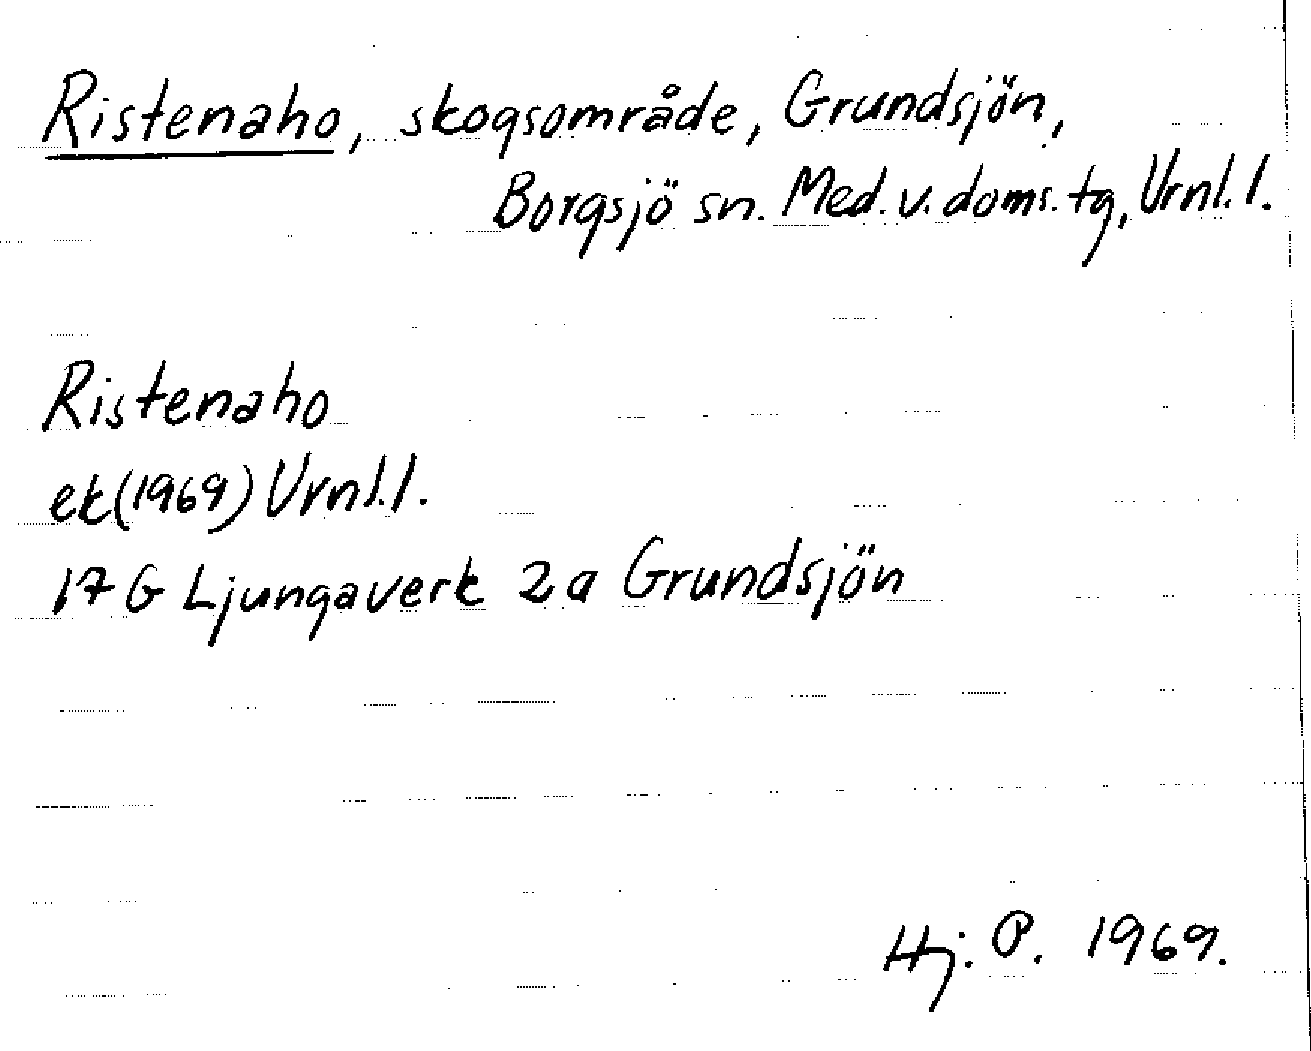 Ristenaho, skogsområde, Grundsjön,
Borgsjö sn. Med. v. doms. tg, Vrnl. l.
Ristenaho
ek (1969) Vrnl. l.
17 G Ljungaverk 2a Grundsjön
Hj. P. 1969.